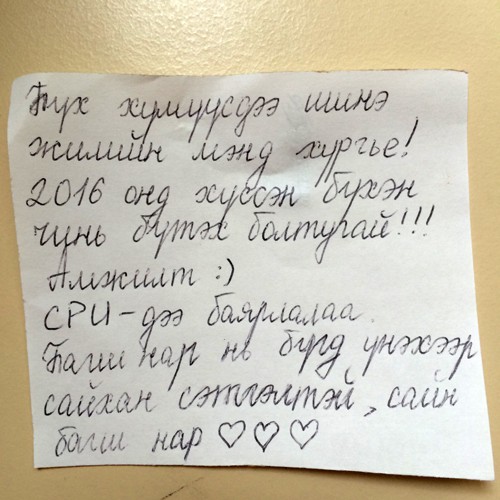 Бүх хүмүүсдээ шинэ
жилийн мэнд хүргье!
2016 онд хүссэн бүхэн
чинь бүтэх болтугай!!!
Амжилт :)
CPU-дээ баярлалаа.
Багш нар нь бүгд үнэхээр
сайхан сэтгэлтэй, сайн
багш нар ♡♡♡